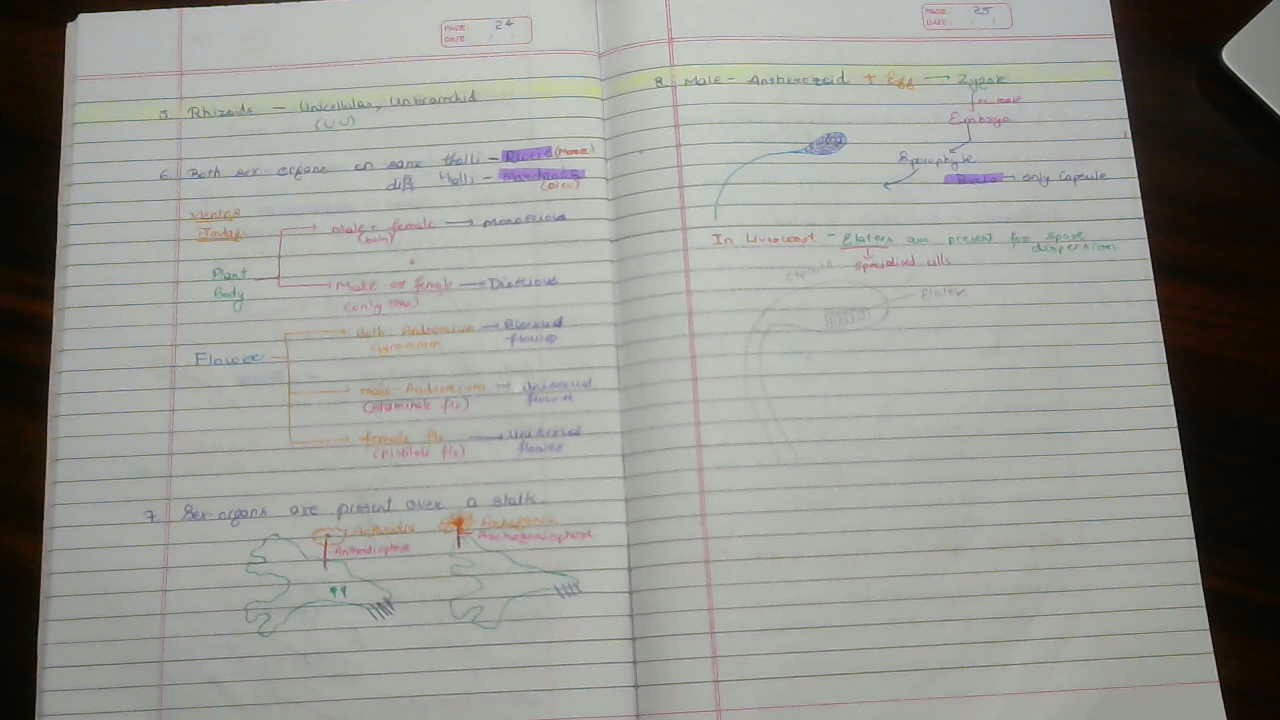 PAGE: 24
DATE:
5. Rhizoids - Unicellular, Unbranchid
(UU)
6. Both sex organs on same thalli - Riccia (Monoe)
diff thalli - Marchantia
(Dieu)
Plant
Body
Male + female → monoecious
(both)
Male or female → Dioecious
(only one)
Flower
Both Androecium → Bisexual
flower
male Androecium → Unisexual
(staminate flr) flower
female flr → Unisexual
(pistilate flr) flower
7. Sex organs are present over a stalk.
Antheridiophore
PAGE: 25
DATE:
8. Male - Antherozoid + Egg → Zygote
Embryo
Sporophyte
→ only Capsule
In Liverwort - Elaters are present for spore
dispersion
specialised cells
capsule
Elater